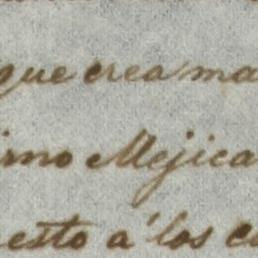 que crea ma
irno Mejica
esto a' los